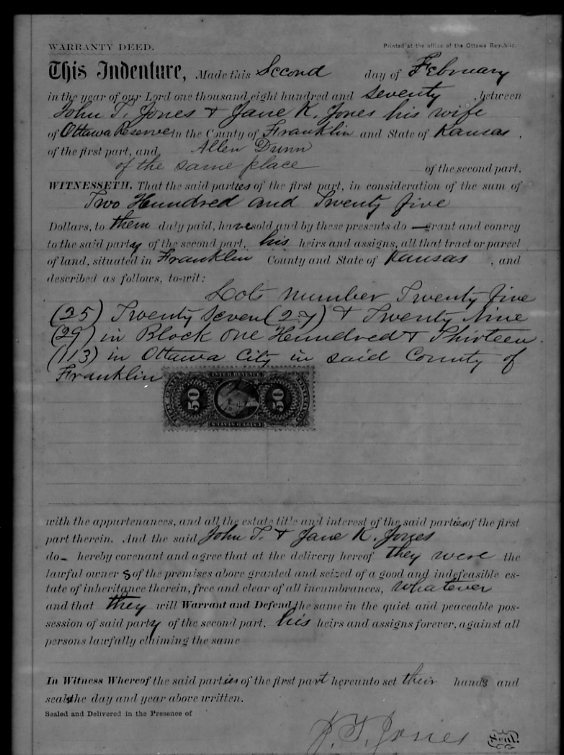 WARRANTY DEED. Printed at the office of the Ottawa Republic.
This Indenture, Made this Second day of February
in the year of our Lord one thousand eight hundred and Seventy between
John T. Jones & Jane K. Jones his wife
of Ottawa Reserve in the County of Franklin and State of Kansas,
of the first part, and, Allen Dunn
of the same place of the second part,
WITNESSETH, That the said parties of the first part, in consideration of the sum of
Two Hundred and Twenty five
Dollars, to them duly paid, have sold and by these presents do grant and convey
to the said party of the second part, his heirs and assigns, all that tract or parcel
of land, situated in Franklin County and State of Kansas, and
described as follows, to-wit:
Lots number Twenty five
(25) Twenty Seven (27) & Twenty Nine
(29) in Block One Hundred & Thirteen
(113) in Ottawa City in said County of
Franklin
50 50
with the appurtenances, and all the estate title and interest of the said parties of the first
part therein. And the said John T. & Jane K. Jones
do hereby covenant and agree that at the delivery hereof they were the
lawful owners of the premises above granted and seized of a good and indefeasible es-
tate of inheritance therein, free and clear of all incumbrances, Whatever
and that they will Warrant and Defend the same in the quiet and peaceable pos-
session of said party of the second part, his heirs and assigns forever, against all
persons lawfully claiming the same
In Witness Whereof the said parties of the first part hereunto set their hands and
seals the day and year above written.
Sealed and Delivered in the Presence of
J. T. Jones Seal.